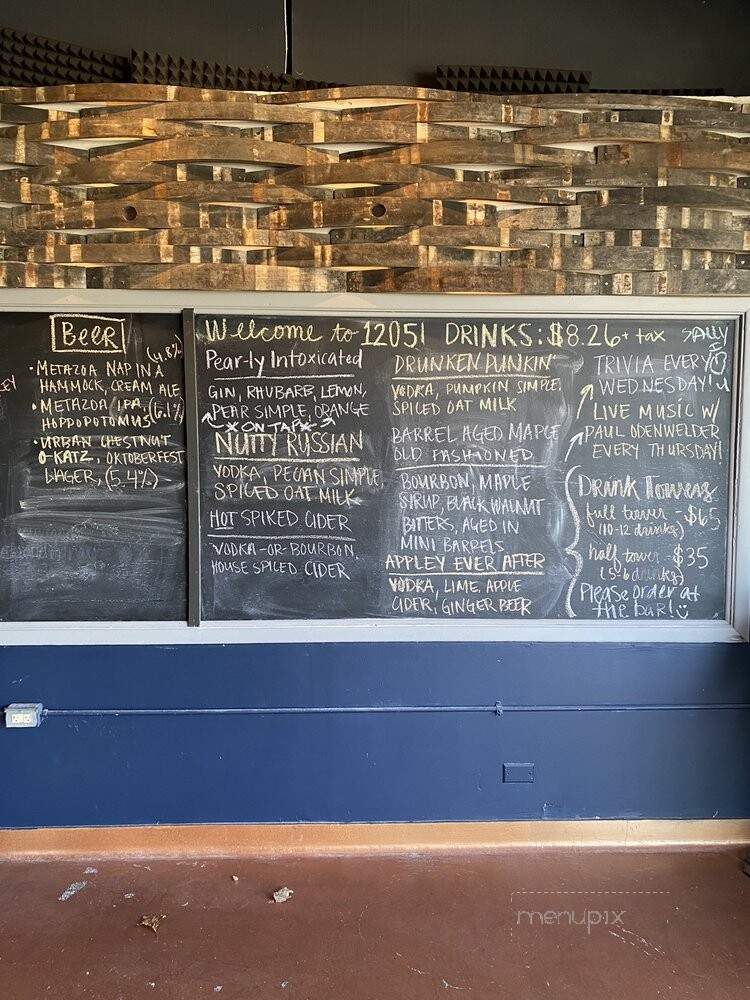 Beer
(4.8%)
• METAZOA NAP IN A
HAMMOCK, CREAM ALE
• METAZOA IPA, (6.1%)
HOPPOPOTOMUS
• URBAN CHESTNUT
O-KATZ, OKTOBERFEST
LAGER, (5.4%)
Welcome to 1205! DRINKS: $8.26 + tax
Pear-ly Intoxicated
GIN, RHUBARB, LEMON,
PEAR SIMPLE, ORANGE
X ON TAP X
NUTTY RUSSIAN
VODKA, PECAN SIMPLE,
SPICED OAT MILK
HOT SPIKED CIDER
VODKA -OR- BOURBON,
HOUSE SPICED CIDER
DRUNKEN PUNKIN'
VODKA, PUMPKIN SIMPLE,
SPICED OAT MILK
BARREL AGED MAPLE
OLD FASHIONED
BOURBON, MAPLE
SYRUP, BLACK WALNUT
BITTERS, AGED IN
MINI BARRELS
APPLEY EVER AFTER
VODKA, LIME, APPLE
CIDER, GINGER BEER
TRIVIA EVERY
WEDNESDAY!
LIVE MUSIC W/
PAUL ODENWELDER
EVERY THURSDAY!
DRINK TOWERS
full tower - $65
(10-12 drinks)
half tower - $35
(5-6 drinks)
Please order at
the bar!
menupix